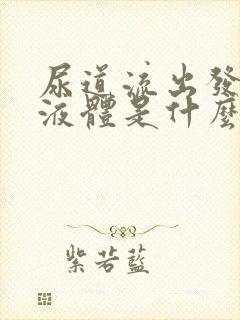 尿道流出發
液體是什麼
紫若藍